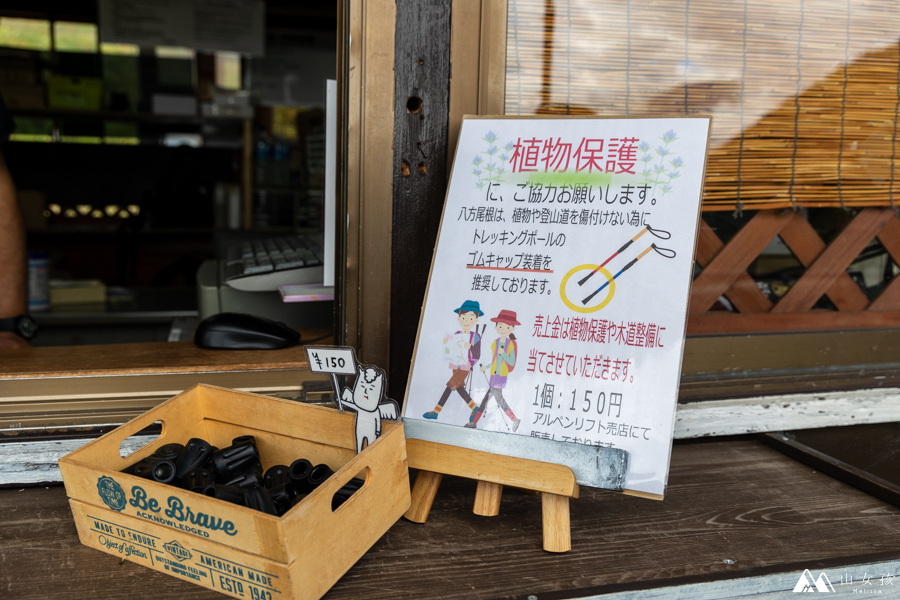 植物保護
に、ご協力お願いします。
八方尾根は、植物や登山道を傷付けない為に
トレッキングポールの
ゴムキャップ装着を
推奨しております。
売上金は植物保護や木道整備に
当てさせていただきます。
1個：150円
アルペンリフト売店にて
販売しております
¥150
THE FLOW OF TIME
Be Brave
ACKNOWLEDGED
MADE TO ENDURE
Object of affection
VINTAGE
OUTSTANDING FEELING OF IMPORTANCE
AMERICAN MADE
ESTD 1942
山女孩
Melissa